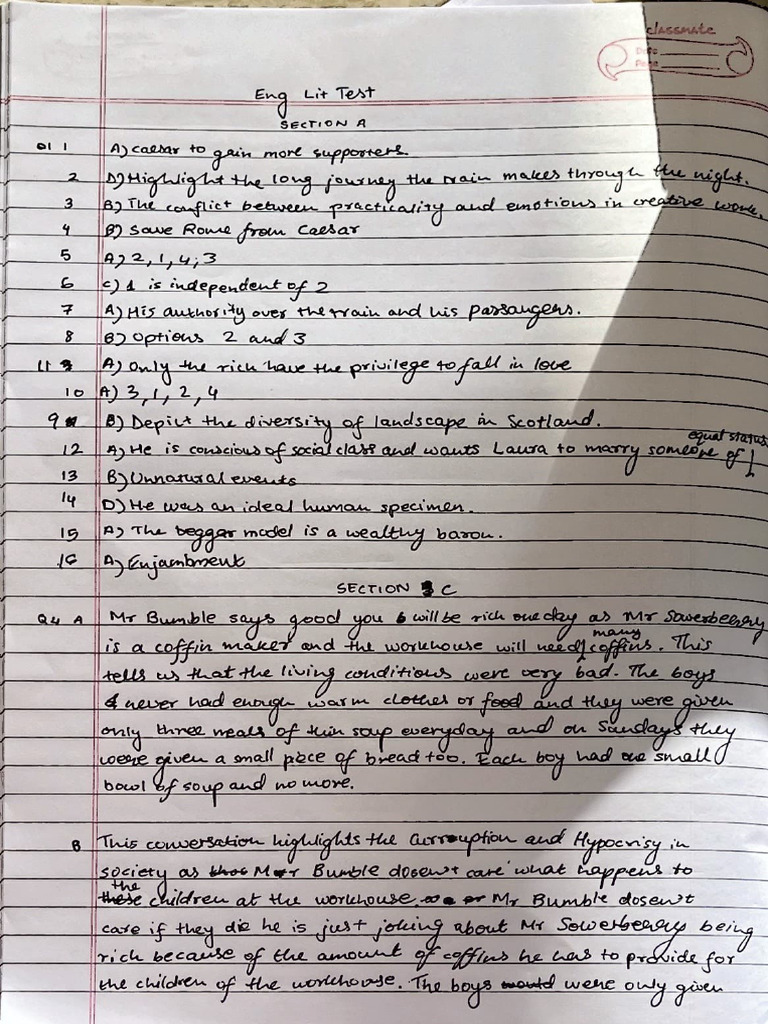 classmate
Date
Page
Eng Lit Test
SECTION A
Q1 1 A) Caesar to gain more supporters.
2 D) Highlight the long journey the train makes through the night.
3 B) The conflict between practicality and emotions in creative work.
4 B) Save Rome from Caesar
5 A) 2, 1, 4, 3
6 C) 1 is independent of 2
7 A) His authority over the train and his passangers.
8 B) Options 2 and 3
11 A) Only the rich have the privilege to fall in love
10 A) 3, 1, 2, 4
9 B) Depict the diversity of landscape in Scotland.
12 A) He is conscious of social class and wants Laura to marry someone of equal status
13 B) Unnatural events
14 D) He was an ideal human specimen.
15 A) The beggar model is a wealthy baron.
16 A) Enjambment
SECTION C
Q4 A Mr Bumble says good you will be rich one day as Mr Sowerbeerry
is a coffin maker and the workhouse will need many coffins. This
tells us that the living conditions were very bad. The boys
never had enough warm clothes or food and they were given
only three meals of thin soup everyday and on Sundays they
were given a small piece of bread too. Each boy had one small
bowl of soup and no more.
B This conversation highlights the Curruption and Hypocrisy in
society as Mr Bumble dosen't care what happens to
the children at the workhouse. Mr Bumble dosen't
care if they die he is just joking about Mr Sowerbeerry being
rich because of the amount of coffins he has to provide for
the children of the workhouse. The boys were only given